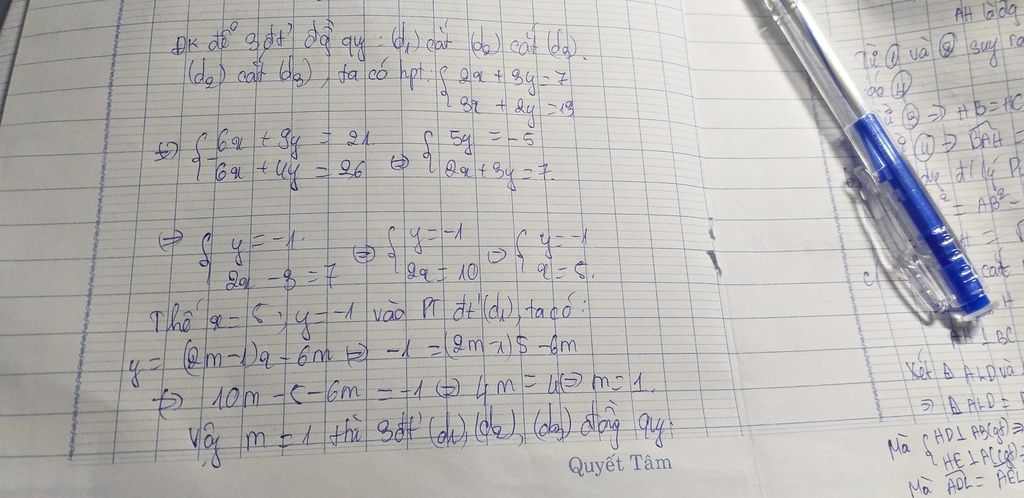 ĐK để 3 đt' đg qy: (d₁) cắt (d₂) cắt (d₃).
(d₂) cắt (d₃), ta có hpt: { 2x + 3y = 7
3x + 2y = 13
<=> { 6x + 9y = 21 
6x + 4y = 26 <=> { 5y = -5
2x + 3y = 7.
<=> { y = -1.
2x - 3 = 7 <=> { y = -1
2x = 10 => { y = -1
x = 5.
Thế x = 5; y = -1 vào PT đt' (d₁), ta có:
y = (2m-1)x - 6m <=> -1 = (2m-1)5 - 6m
<=> 10m - 5 - 6m = -1 <=> 4m = 4 => m = 1.
Vậy m = 1 thì 3 đt' (d₁) (d₂), (d₃) đồng quy.
Quyết Tâm
AH là đg
Từ ① và ② suy ra
③ => AB = AC
④ => BAH =
đl lý
= AB² -
cắt
H
BC
Xét Δ ALD và
=> Δ ALD =
Mà { HD⊥AB(gt) =>
HE⊥AC(gt)
Mà ADL = AEL